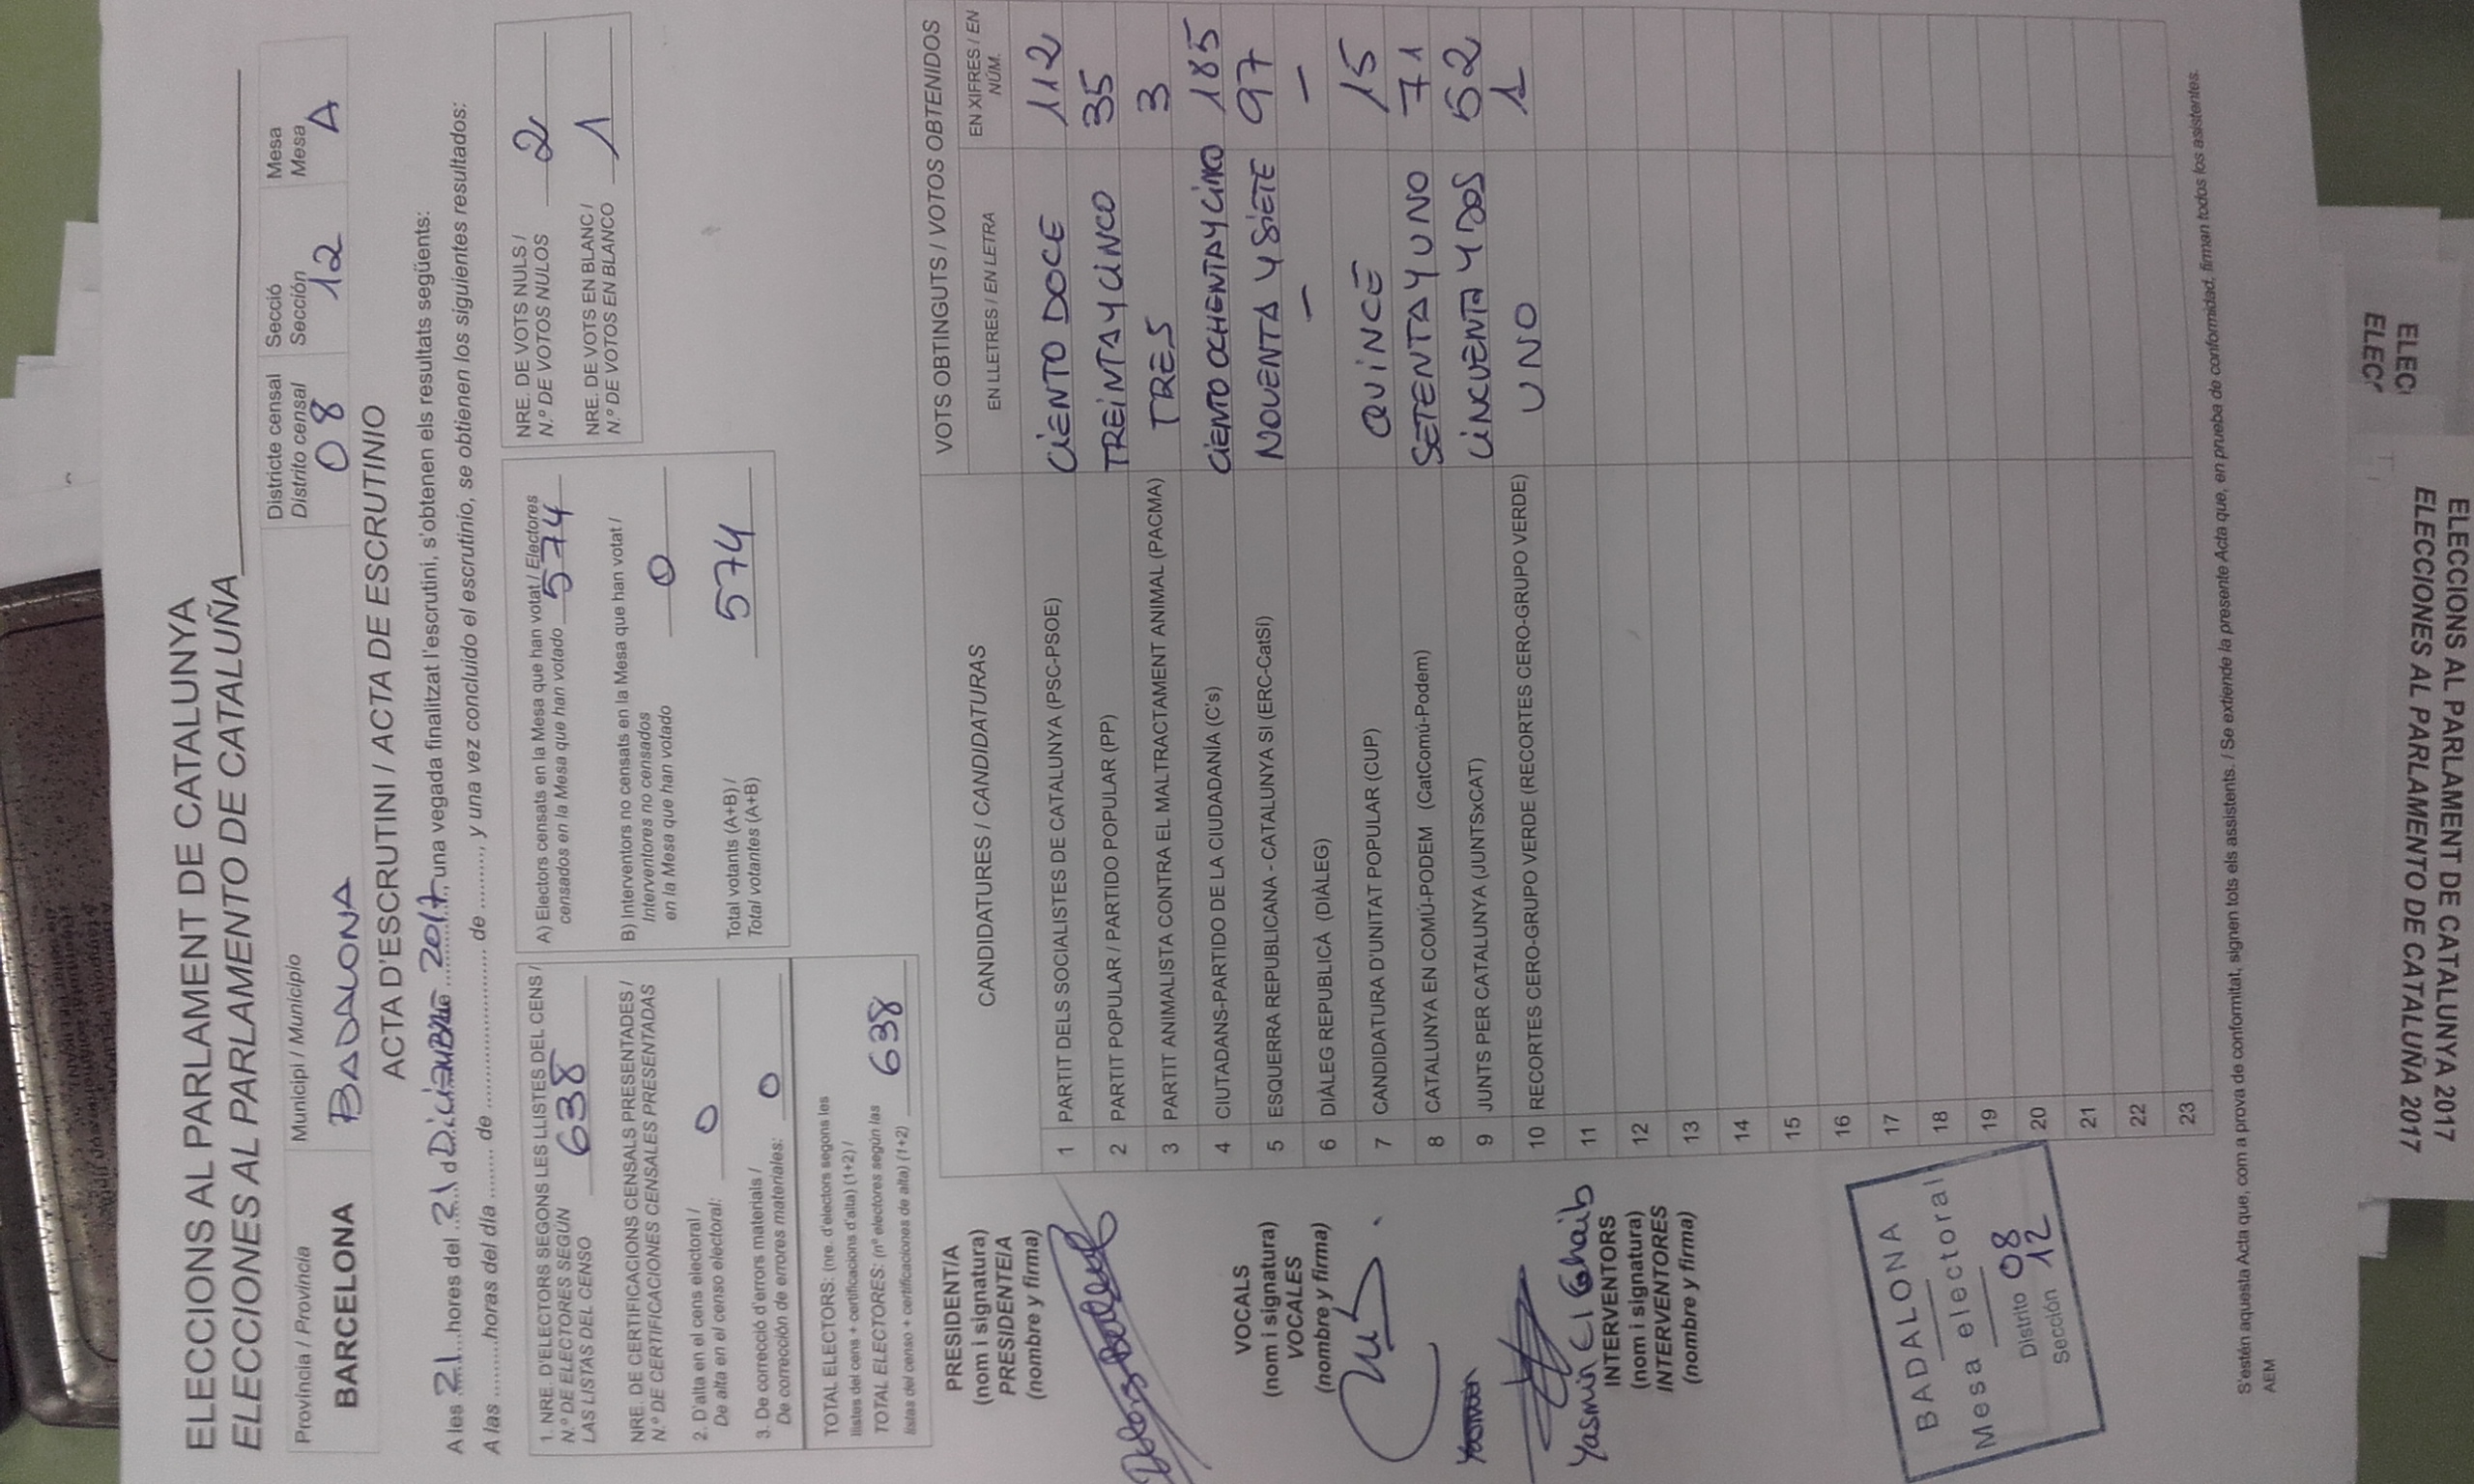 ELECCIONS AL PARLAMENT DE CATALUNYA
ELECCIONES AL PARLAMENTO DE CATALUÑA
Província / Provincia
BARCELONA
Municipi / Municipio
BADALONA
Districte censal
Distrito censal
08
Secció
Sección
12
Mesa
Mesa
A
ACTA D'ESCRUTINI / ACTA DE ESCRUTINIO
A les 21 hores del 21 d Diciembre 2017, una vegada finalitzat l'escrutini, s'obtenen els resultats següents:
A las .........horas del día ........ de ......................... de ........., y una vez concluido el escrutinio, se obtienen los siguientes resultados:
1. NRE. D'ELECTORS SEGONS LES LLISTES DEL CENS /
N.º DE ELECTORES SEGÚN
LAS LISTAS DEL CENSO 638
NRE. DE CERTIFICACIONS CENSALS PRESENTADES /
N.º DE CERTIFICACIONES CENSALES PRESENTADAS
2. D'alta en el cens electoral /
De alta en el censo electoral: 0
3. De correcció d'errors materials /
De corrección de errores materiales: 0
TOTAL ELECTORS: (nre. d'electors segons les
llistes del cens + certificacions d'alta) (1+2) /
TOTAL ELECTORES: (nº electores según las
listas del censo + certificaciones de alta) (1+2) 638
A) Electors censats en la Mesa que han votat / Electores
censados en la Mesa que han votado 574
B) Interventors no censats en la Mesa que han votat /
Interventores no censados
en la Mesa que han votado 0
Total votants (A+B) /
Total votantes (A+B) 574
NRE. DE VOTS NULS /
N.º DE VOTOS NULOS 2
NRE. DE VOTS EN BLANC /
N.º DE VOTOS EN BLANCO 1
PRESIDENT/A
(nom i signatura)
PRESIDENTE/A
(nombre y firma)
VOCALS
(nom i signatura)
VOCALES
(nombre y firma)
Yasmin
Yasmin El Ghaib
INTERVENTORS
(nom i signatura)
INTERVENTORES
(nombre y firma)
CANDIDATURES / CANDIDATURAS
VOTS OBTINGUTS / VOTOS OBTENIDOS
EN LLETRES / EN LETRA
EN XIFRES / EN
NÚM.
1 PARTIT DELS SOCIALISTES DE CATALUNYA (PSC-PSOE) CIENTO DOCE 112
2 PARTIT POPULAR / PARTIDO POPULAR (PP) TREINTA Y CINCO 35
3 PARTIT ANIMALISTA CONTRA EL MALTRACTAMENT ANIMAL (PACMA) TRES 3
4 CIUTADANS-PARTIDO DE LA CIUDADANÍA (C's) CIENTO OCHENTA Y CINCO 185
5 ESQUERRA REPUBLICANA - CATALUNYA SI (ERC-CatSí) NOVENTA Y SIETE 97
6 DIÀLEG REPUBLICÀ (DIÀLEG) — —
7 CANDIDATURA D'UNITAT POPULAR (CUP) QUINCE 15
8 CATALUNYA EN COMÚ-PODEM (CatComú-Podem) SETENTA Y UNO 71
9 JUNTS PER CATALUNYA (JUNTSxCAT) CINCUENTA Y DOS 52
10 RECORTES CERO-GRUPO VERDE (RECORTES CERO-GRUPO VERDE) UNO 1
11
12
13
14
15
16
17
18
19
20
21
22
23
BADALONA
Mesa electoral
Distrito 08
Sección 12
S'estén aquesta Acta que, com a prova de conformitat, signen tots els assistents. / Se extiende la presente Acta que, en prueba de conformidad, firman todos los asistentes.
AEM
ELECCIONES AL PARLAMENTO DE CATALUÑA 2017
ELECCIONS AL PARLAMENT DE CATALUNYA 2017
ELEC
ELEC